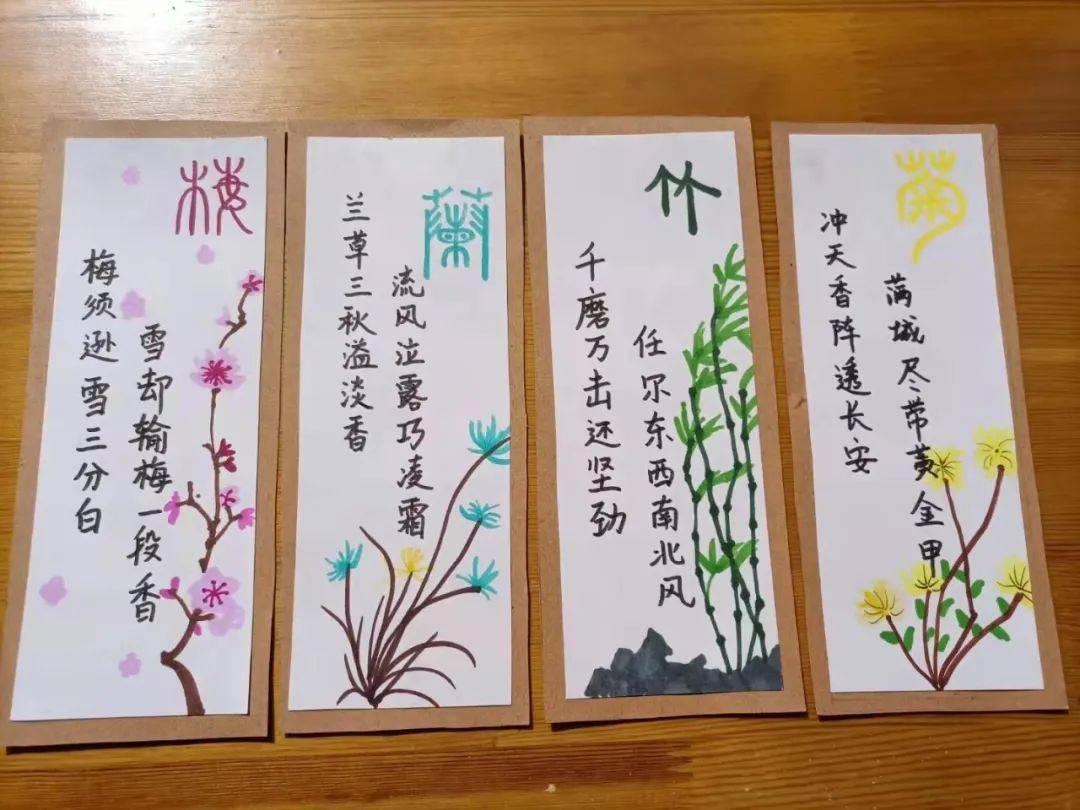 梅
梅须逊雪三分白
雪却输梅一段香
蘭
兰草三秋溢淡香
流风泣露巧凌霜
竹
千磨万击还坚劲
任尔东西南北风
菊
冲天香阵透长安
满城尽带黄金甲